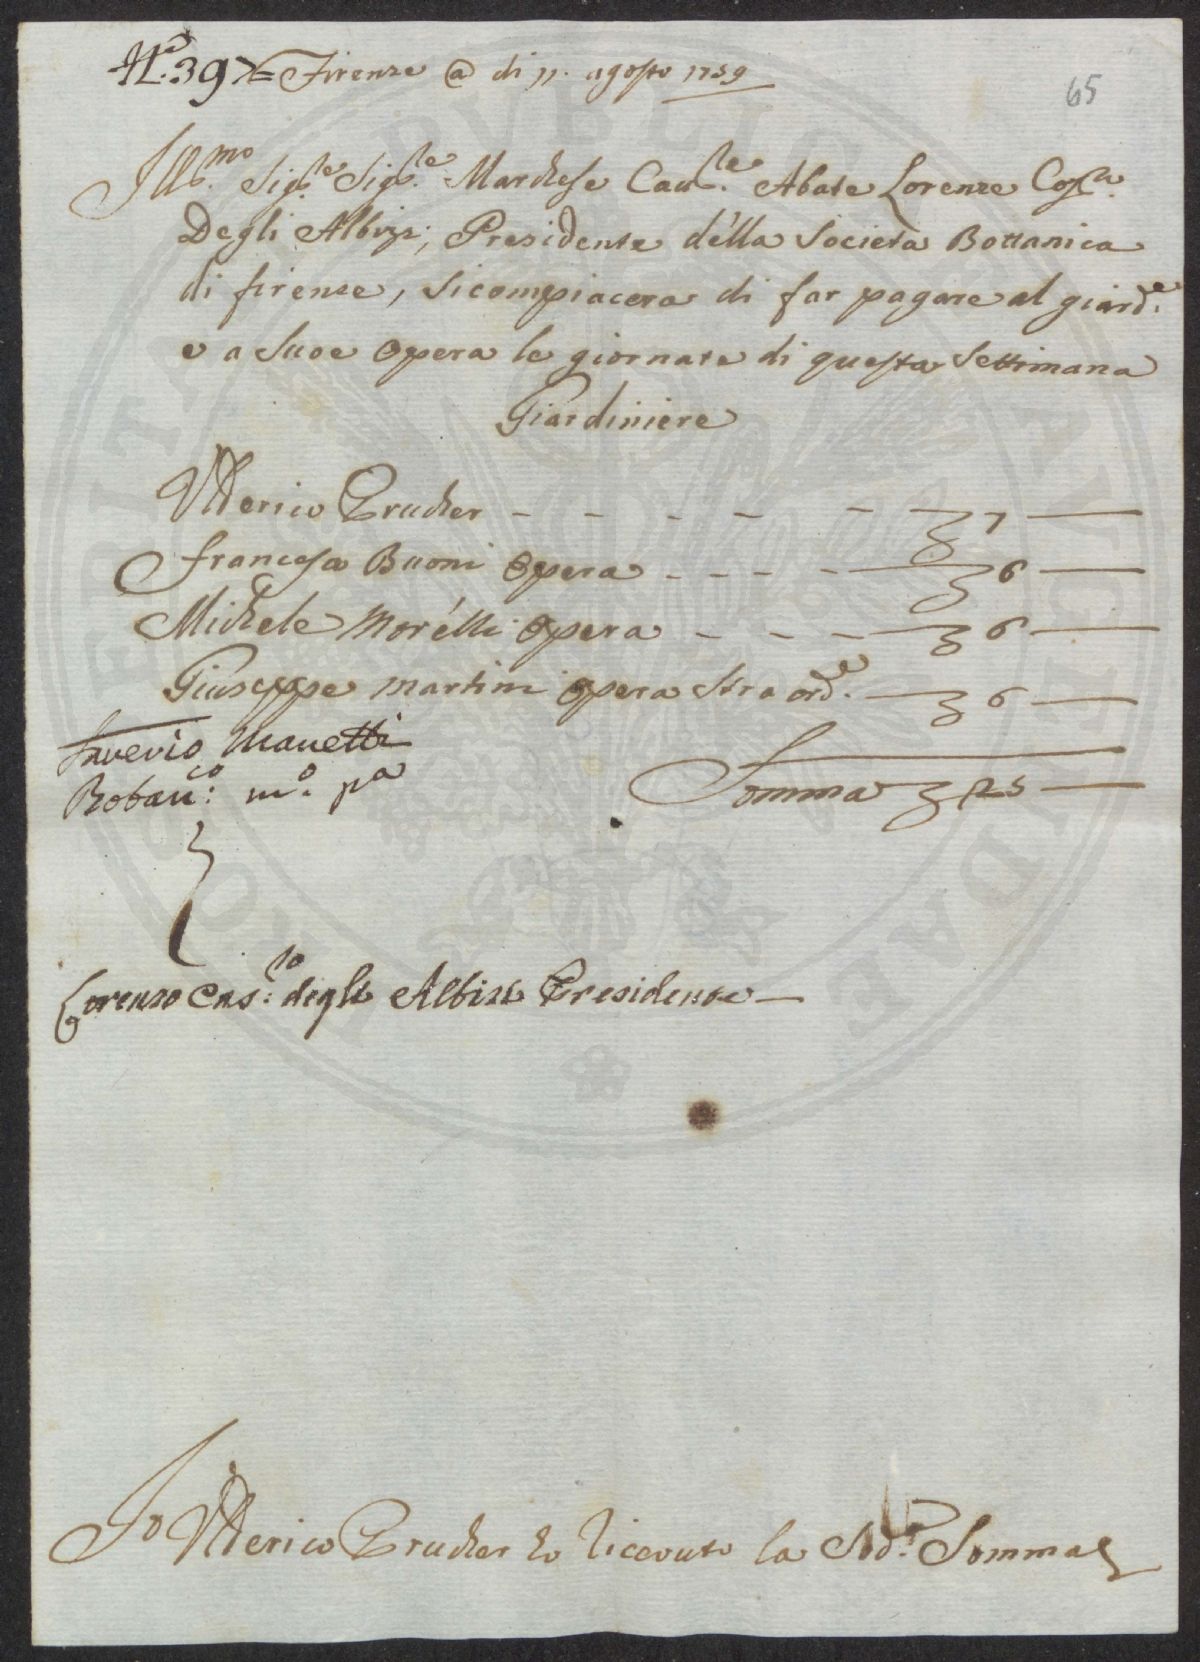 N.o 39 = Firenze @ di 11. agosto 1759
65
Ill.mo Sig.re Sig.re Marchese Cau.re Abate Lorenzo
Degli Albizi; Presidente della Societa Bottanica
di firenze, Si compiacera di far pagare al giard.e
e a Suoe Opera le giornate di questa Settimana
Giardiniere
Ulderico Prucher - - - - - 7 —
Francesco Buoni Opera - - - - 6 —
Michele Morélli Opera - - - 6 —
Giuseppe Martini Opera Stra ord.e — 6 —
Saverio Manetti
m.o p.a
Somma 25 —
Lorenzo degli Albizi Presidente —
Io Ulderico Prucher ho riceouto la Sod.a Somma